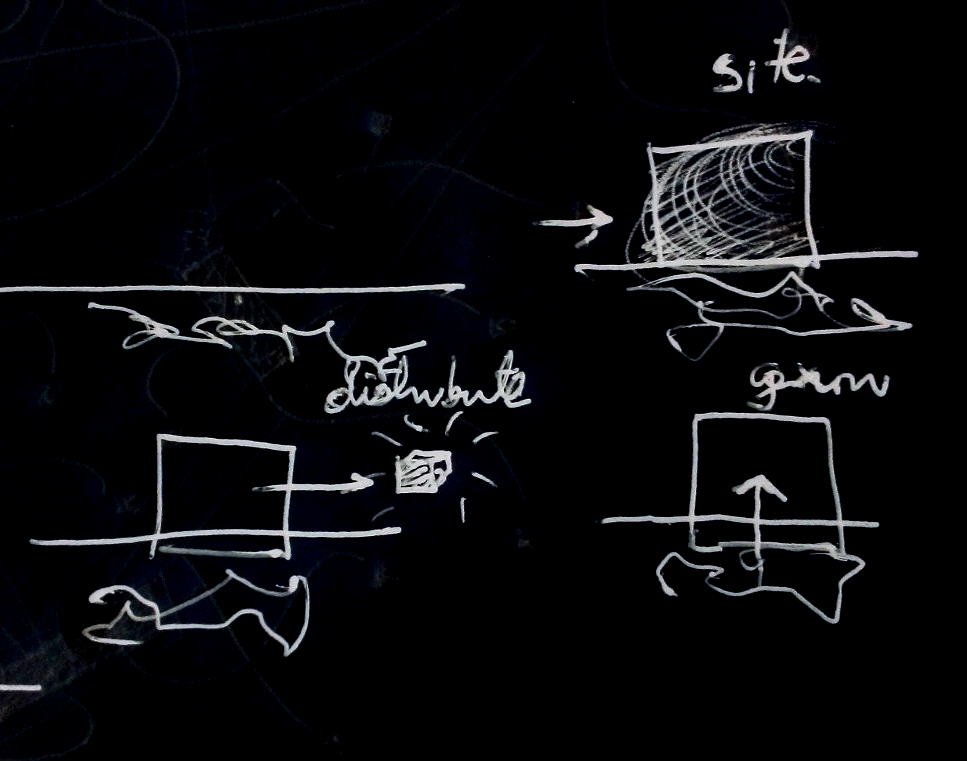 site
distribute
grow